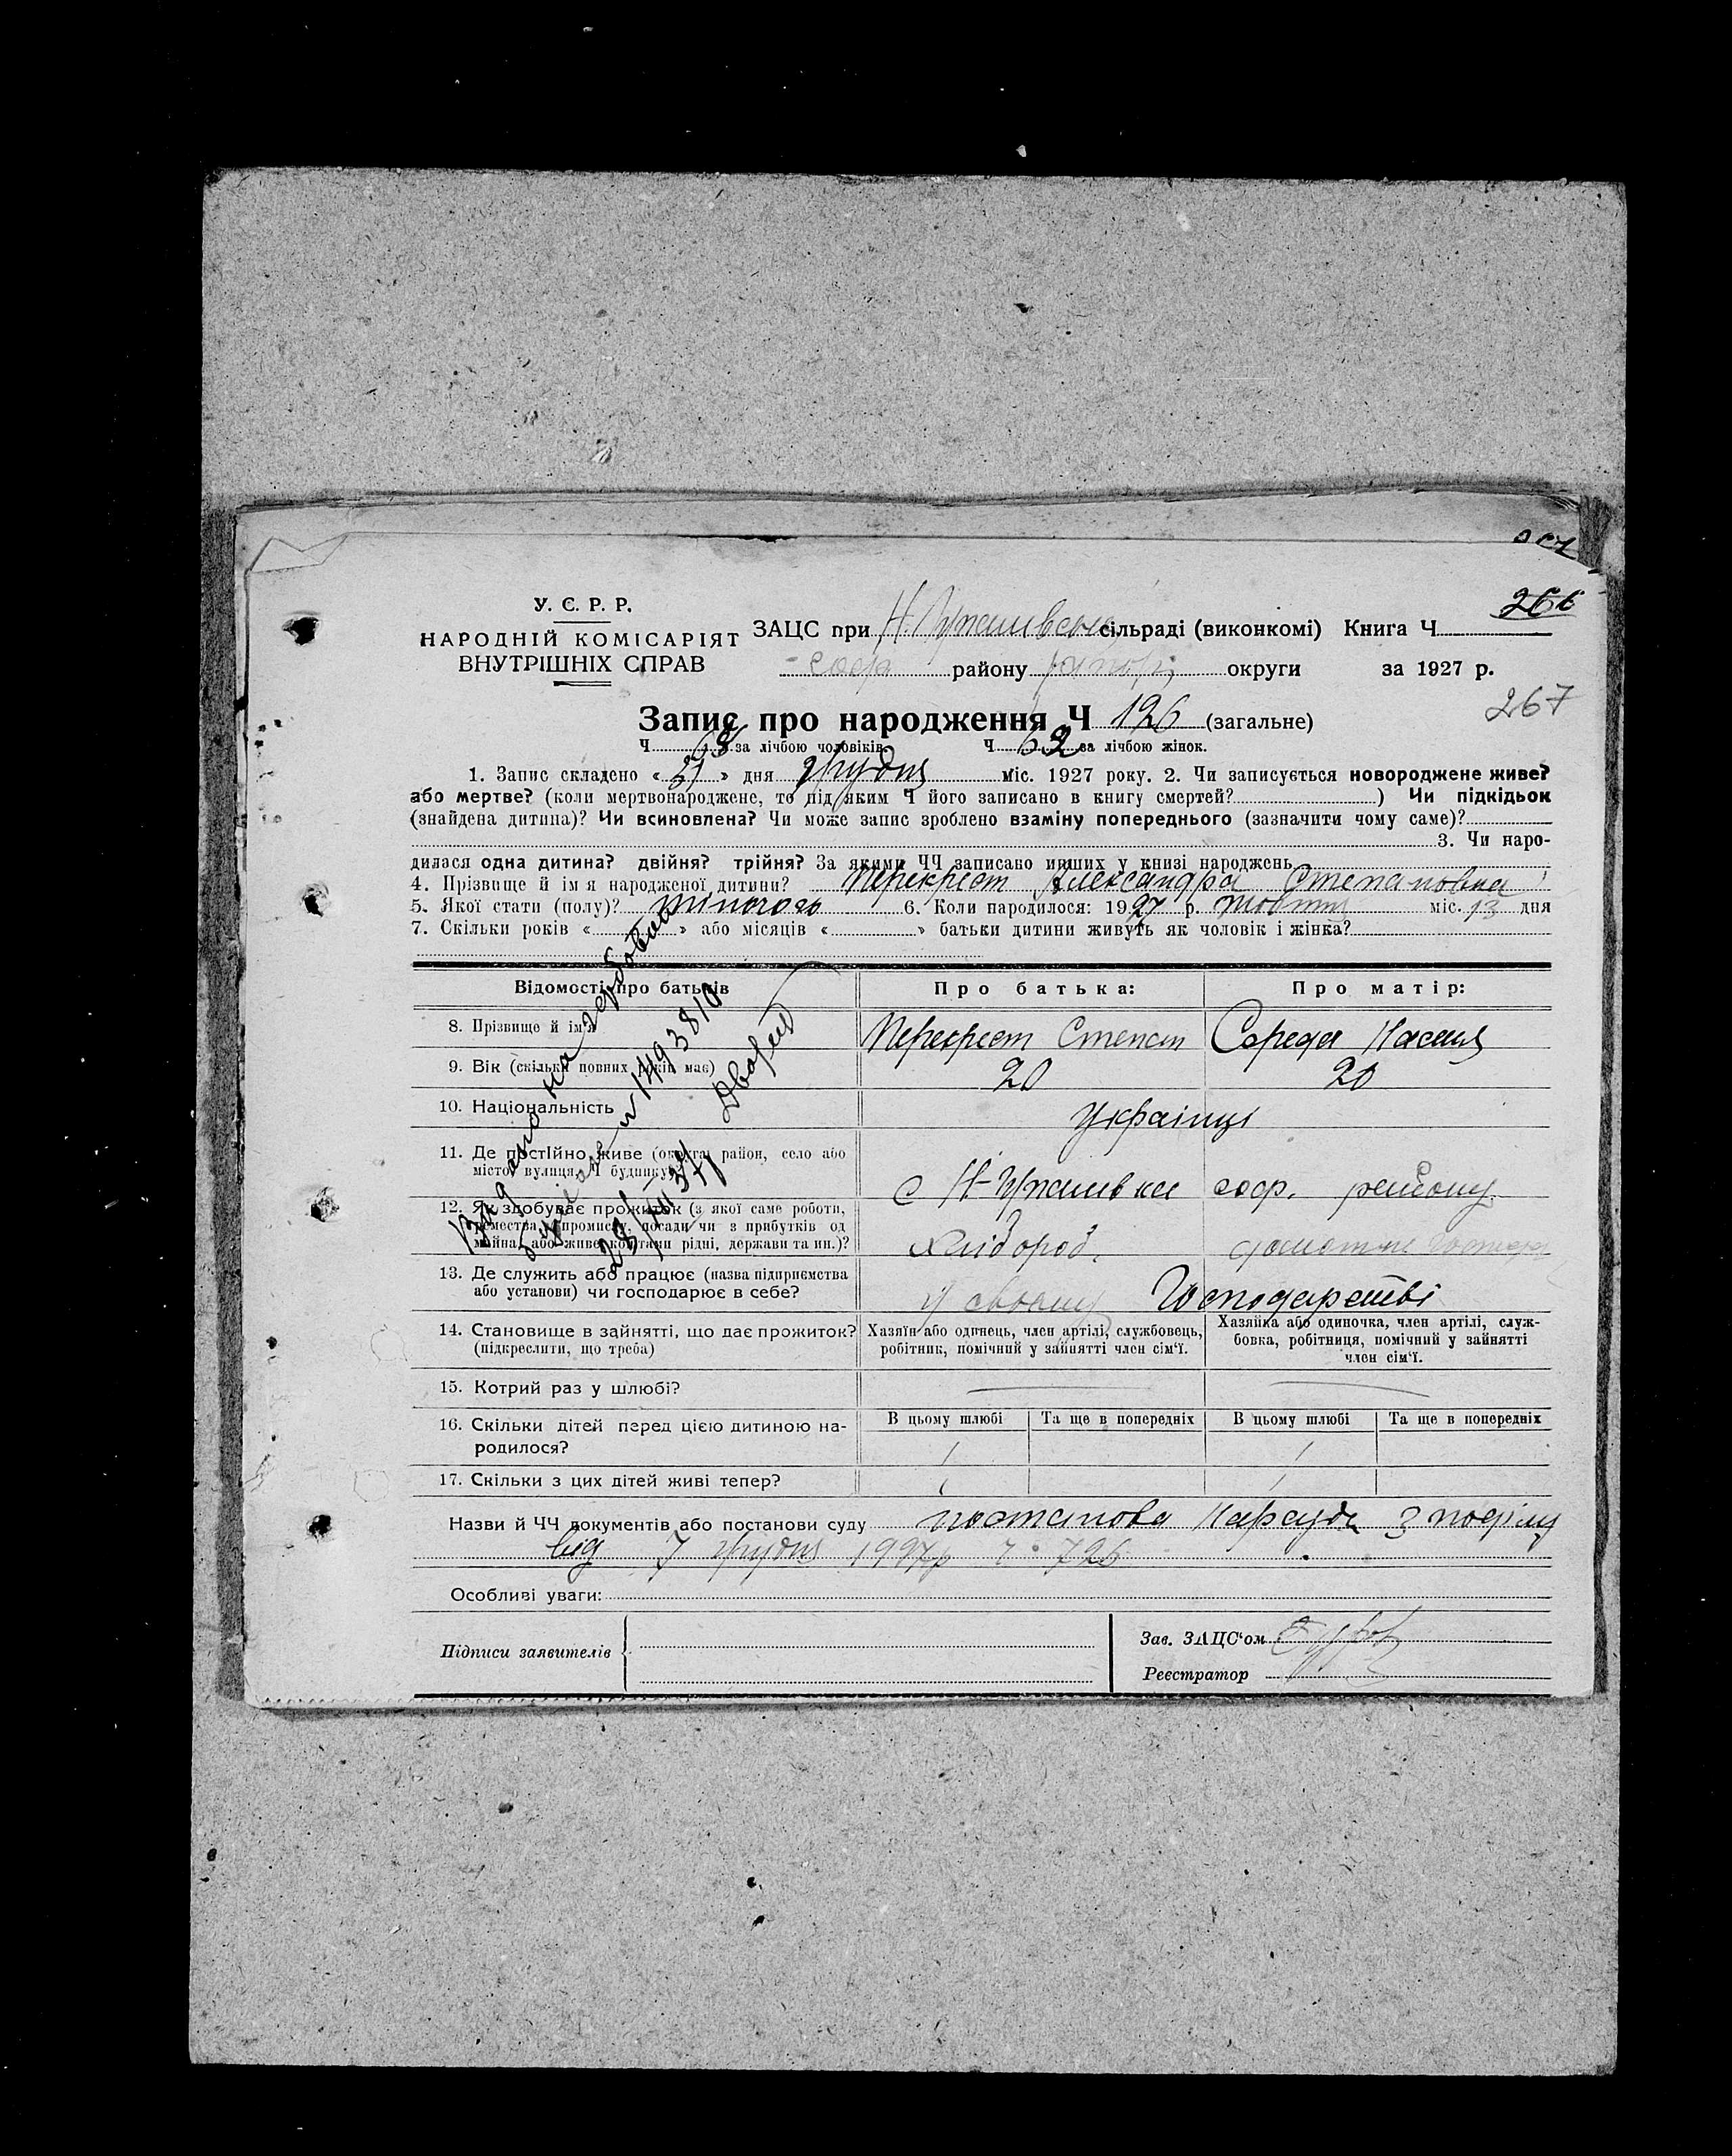 266
У. С. Р. Р.
НАРОДНІЙ КОМІСАРІЯТ
ВНУТРІШНІХ СПРАВ
ЗАЦС при сільраді (виконкомі) Книга Ч
району округи за 1927 р.
267
Запис про народження Ч 126 (загальне)
Ч за лічбою чоловіків Ч 62 за лічбою жінок.
1. Запис складено « » дня грудня міс. 1927 року. 2. Чи записується новороджене живе?
або мертве? (коли мертвонароджене, то під яким Ч його записано в книгу смертей? ) Чи підкідьок
(знайдена дитина)? Чи всиновлена? Чи може запис зроблено взаміну попереднього (зазначити чому саме)?
3. Чи наро-
дилася одна дитина? двійня? трійня? За якими ЧЧ записано инших у книзі народжень
4. Прізвище й ім'я народженої дитини? Перехрест Александра Степановна
5. Якої стати (полу)? жіночого 6. Коли народилося: 1927 р. жовтня міс. 13 дня
7. Скільки років « » або місяців « » батьки дитини живуть як чоловік і жінка?
Відомості про батьків Про батька: Про матір:
8. Прізвище й ім'я Перехрест Степан Середа Насия
9. Вік (скільки повних років має) 20 20
10. Національність Українці
11. Де постійно живе (округа, район, село або
місто, вулиця, Ч будинку) с соф. району
12. Як здобуває прожиток (з якої саме роботи,
ремества, промислу, посади чи з прибутків од
майна, або живе коштами рідні, держави та ин.)? Хлібороб.
13. Де служить або працює (назва підприємства
або установи) чи господарює в себе? У своєму Господарстві
14. Становище в зайнятті, що дає прожиток?
(підкреслити, що треба)
Хазяїн або одинець, член артілі, службовець,
робітник, помічний у зайнятті член сім'ї.
Хазяйка або одиночка, член артілі, служ-
бовка, робітниця, помічний у зайнятті
член сім'ї.
15. Котрий раз у шлюбі?
16. Скільки дітей перед цією дитиною на-
родилося?
В цьому шлюбі Та ще в попередніх В цьому шлюбі Та ще в попередніх
1 1
17. Скільки з цих дітей живі тепер? 1 1
Назви й ЧЧ документів або постанови суду постанова Нарсуда
від 7 грудня 1927р ч. 726
Особливі уваги:
Підписи заявителів
Зав. ЗАЦС'ом
Реєстратор